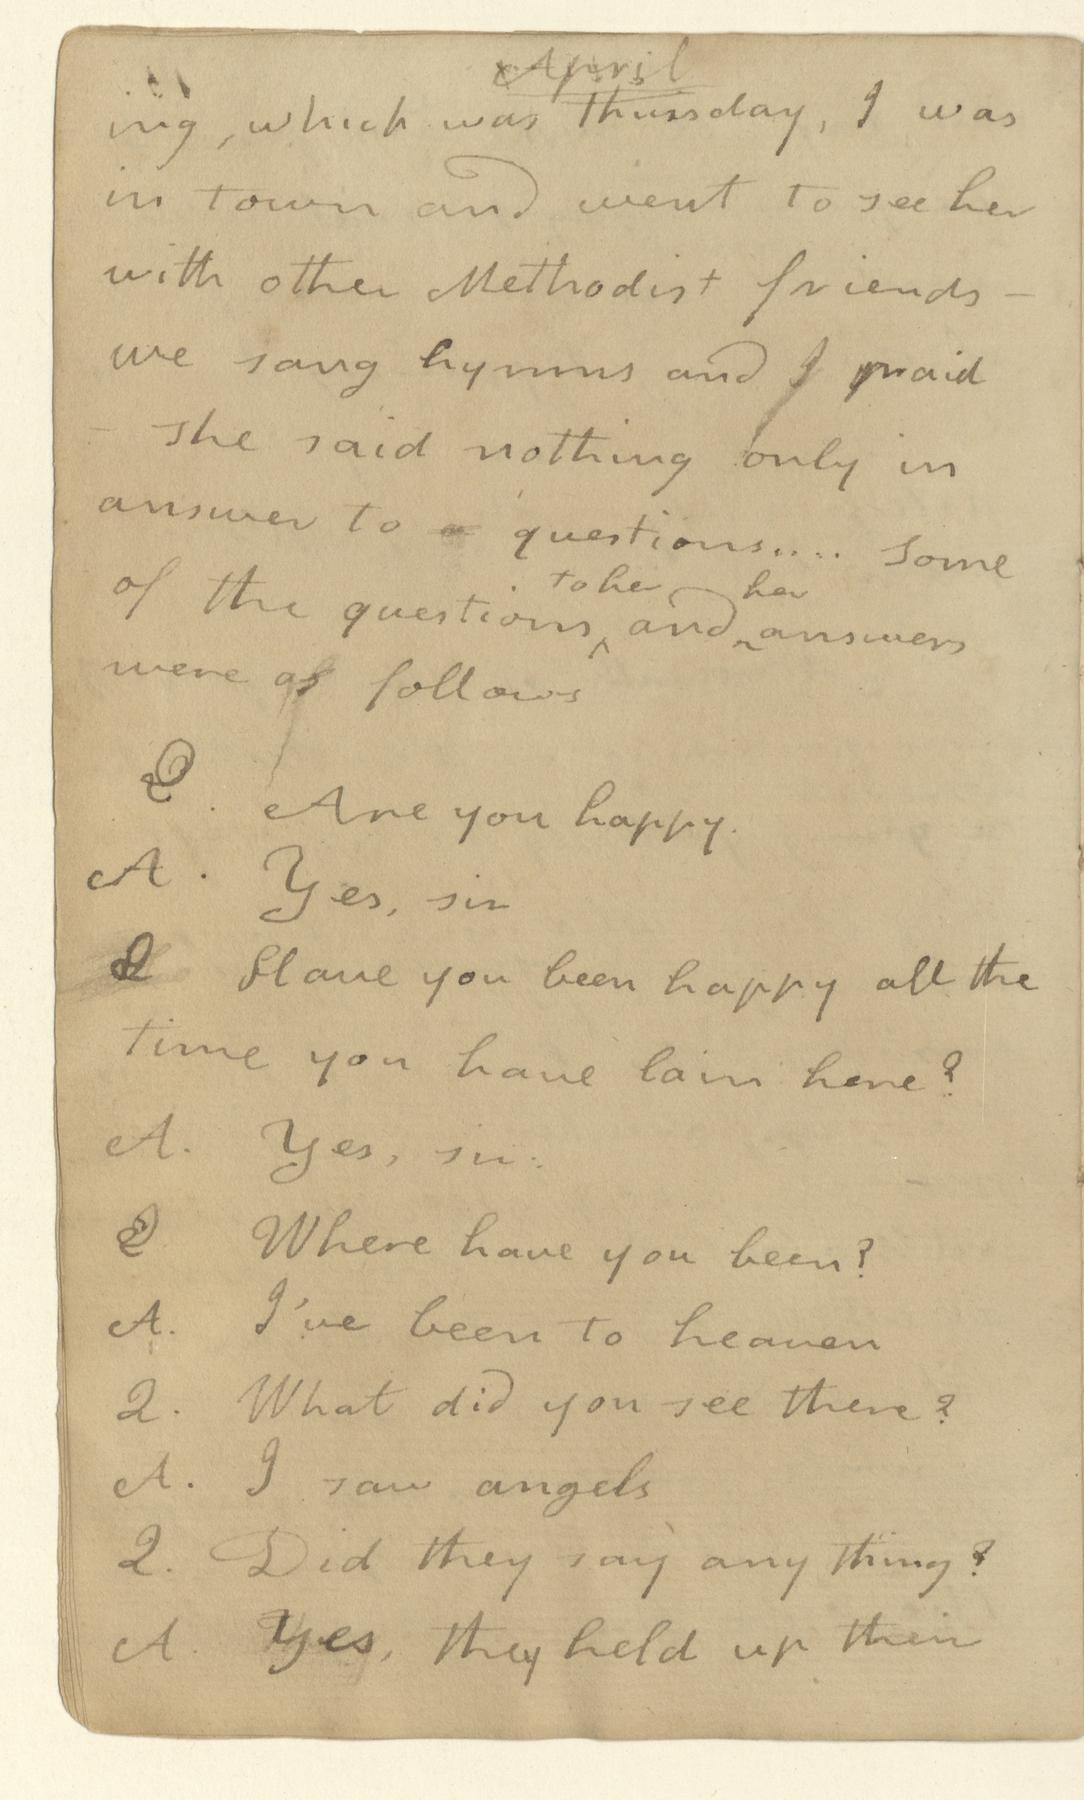 April
ing, which was Thursday, I was
in town and went to see her
with other Methodist friends –
we sang hymns and I praid
– she said nothing only in
answer to questions.... Some
to her her
of the questions ^ and ^ answers
were as follows
Q. Are you happy.
A. Yes, sir
Q Have you been happy all the
time you have lain here?
A. Yes, sir.
Q Where have you been?
A. I've been to heaven
Q. What did you see there?
A. I saw angels
Q. Did they say any thing?
A. Yes, they held up their